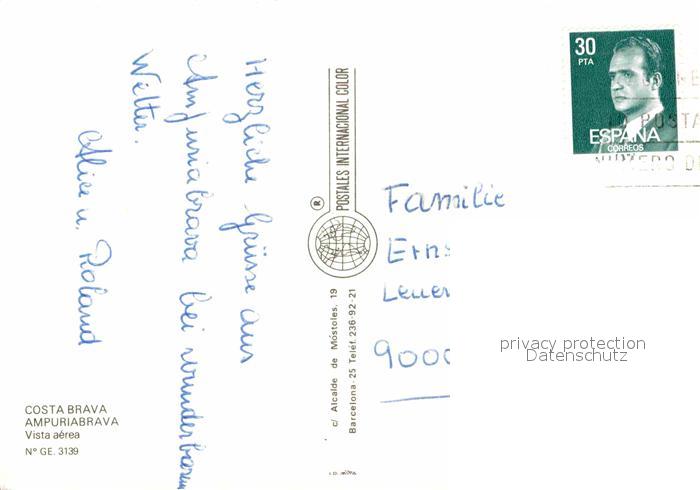 Herzliche Grüsse aus
Ampuriabrava bei wunderbarem
Wetter.
Alice u. Roland
COSTA BRAVA
AMPURIABRAVA
Vista aérea
N° GE. 3139
POSTALES INTERNACIONAL COLOR
®
c/ Alcalde de Móstoles, 19
Barcelona-25 Teléf. 236-92-21
30
PTA
ESPAÑA
CORREOS
POSTA
NUMERO D
Familie
Erns
Leuen
9000
privacy protection
Datenschutz